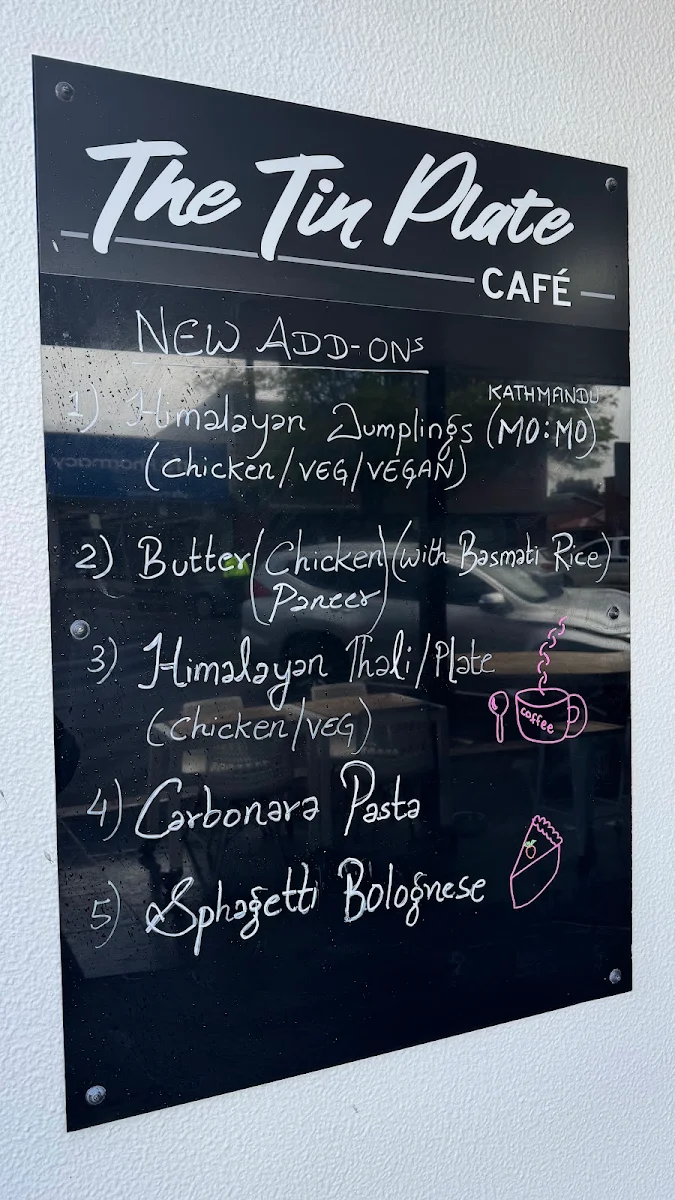 The Tin Plate
CAFÉ
NEW ADD-ONs
1) Himalayan Dumplings (MO:MO)
KATHMANDU
(Chicken/VEG/VEGAN)
2) Butter (Chicken) (with Basmati Rice)
Paneer
3) Himalayan Thali/Plate
(Chicken/VEG)
coffee
4) Carbonara Pasta
5) Sphagetti Bolognese